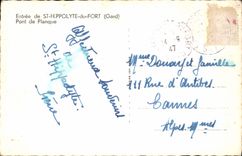 Entrée de ST-HIPPOLYTE-du-FORT (Gard)
Pont de Planque
Affectueux souvenirs
de
St Hippolyte
47
Mme Douary et famille
188 Rue d'Antibes
Cannes
Alpes Mmes